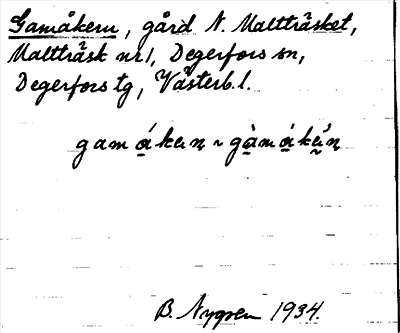 Gamåkern, gård N. Maltträsket,
Maltträsk nr 1, Degerfors sn,
Degerfors tg, Västerb. l.
gamákæn ~ gàmákæ̀n
B. Nygren 1934.